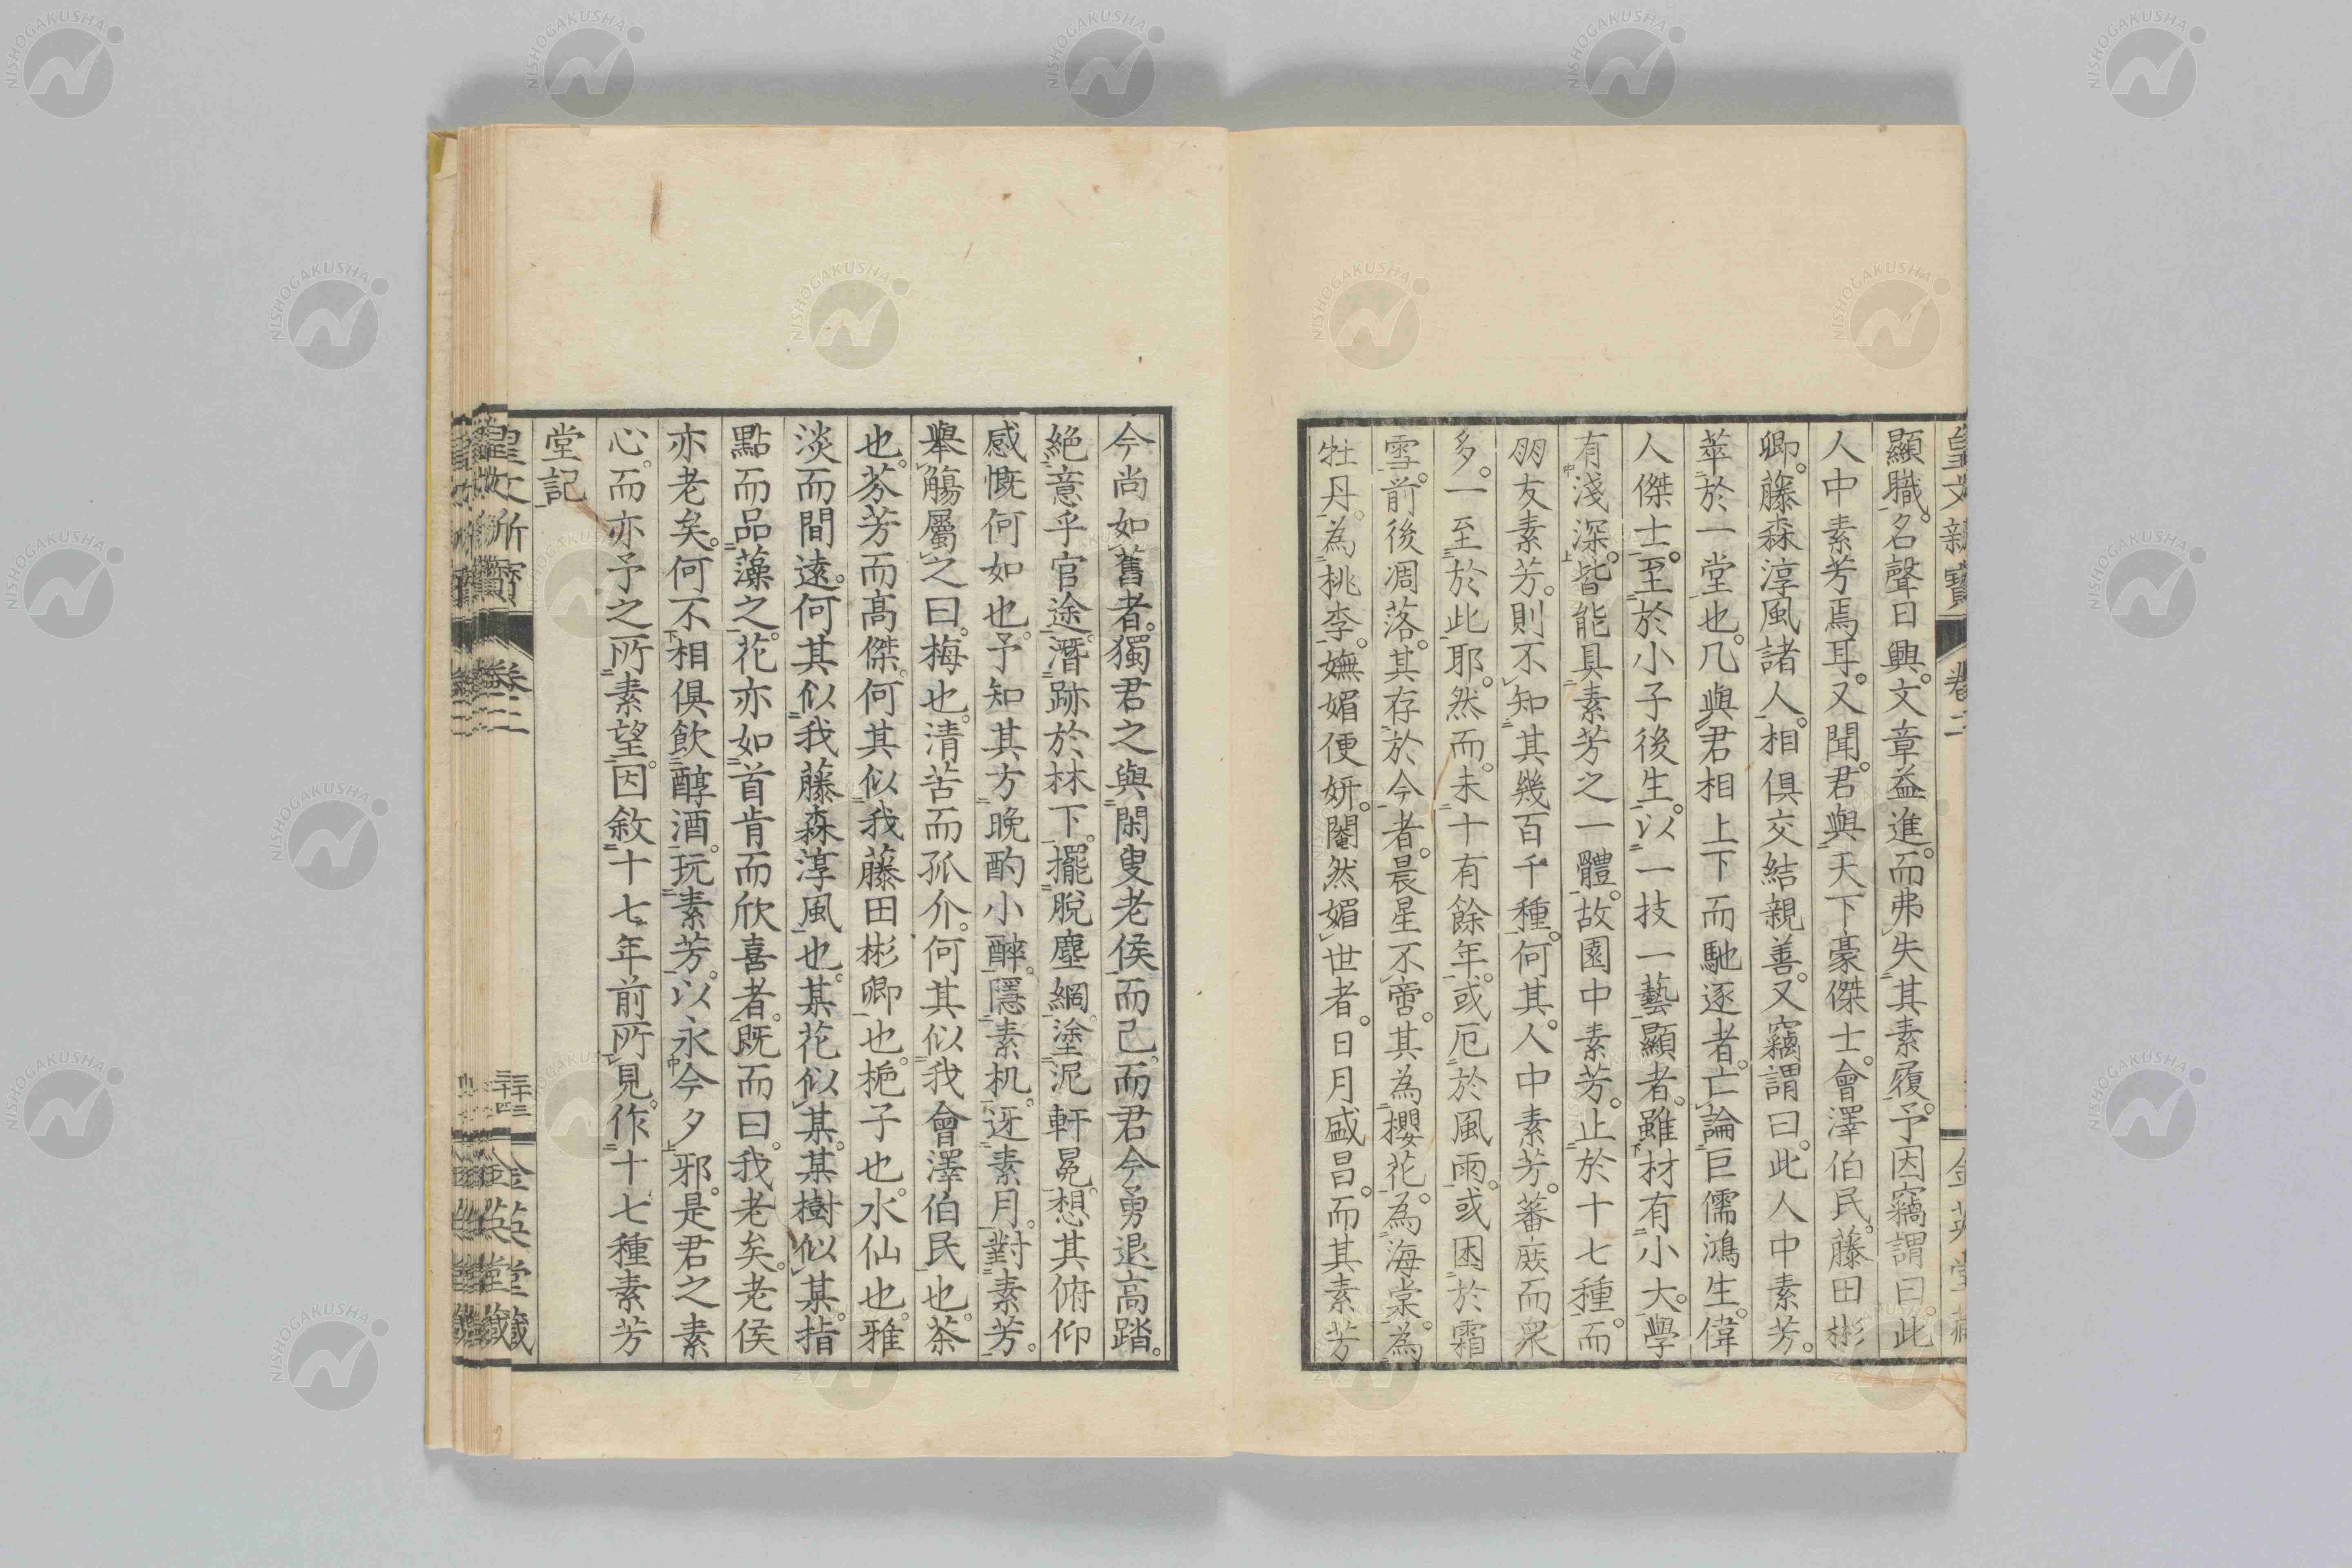 顯職。名聲日興。文章益進。而弗失其素履。予因竊謂曰。此
人中素芳焉耳。又聞。君與天下豪傑士。會澤伯民。藤田彬
卿。藤森淳風諸人。相俱交結親善。又竊謂曰。此人中素芳。
萃於一堂也。凡與君相上下而馳逐者。亡論巨儒鴻生。偉
人傑士。至於小子後生。以一技一藝顯者。雖材有小大。學
有淺深。皆能具素芳之一體。故園中素芳。止於十七種。而
朋友素芳。則不知其幾百千種。何其人中素芳。蕃庶而衆
多。一至於此耶。然而。未十有餘年。或厄於風雨。或困於霜
雪。前後凋落。其存於今者。晨星不啻。其為櫻花。為海棠。為
牡丹。為桃李。嫵媚便妍。閹然媚世者。日月盛昌。而其素芳
今尚如舊者。獨君之與閑叟老侯而已。而君今勇退高踏。
絕意乎官途。潛跡於林下。擺脫塵網。塗泥軒冕。想其俯仰
感慨何如也。予知其方晚酌小醉。隱素机。迓素月。對素芳。
舉觴屬之曰。梅也。清苦而孤介。何其似我會澤伯民也。茶
也。芬芳而高傑。何其似我藤田彬卿也。梔子也。水仙也。雅
淡而間遠。何其似我藤森淳風也。某花似某。某樹似某。指
點而品藻之。花亦如首肯而欣喜者。既而曰。我老矣。老侯
亦老矣。何不相俱飲醇酒。玩素芳。以永今夕邪。是君之素
心。而亦予之所素望。因敘十七年前所見。作十七種素芳
堂記
卷二
金英堂藏